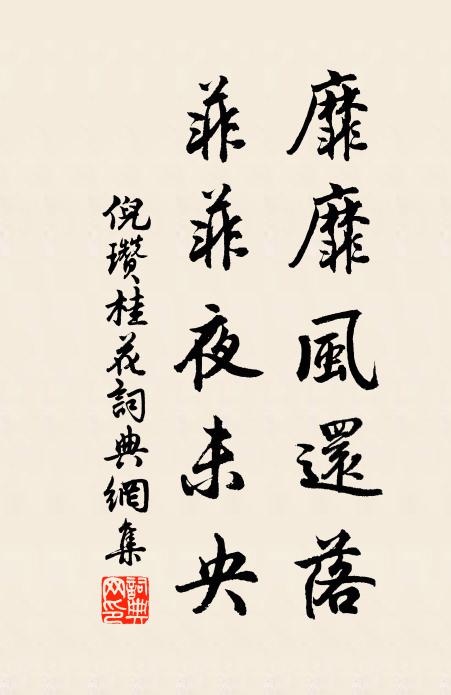 靡靡風還落
菲菲夜未央
倪瓚桂花詞典網集
詞典網印